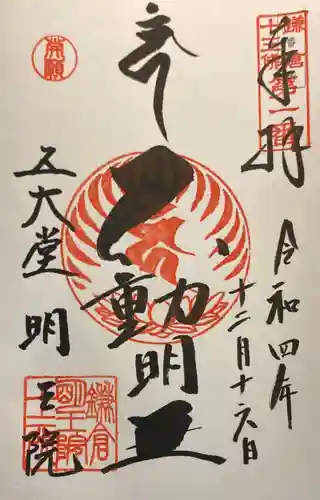 鎌倉
十三佛第一番
奉拝
令和四年
十二月十六日
不動明王
五大堂 明王院
鎌倉
明王院